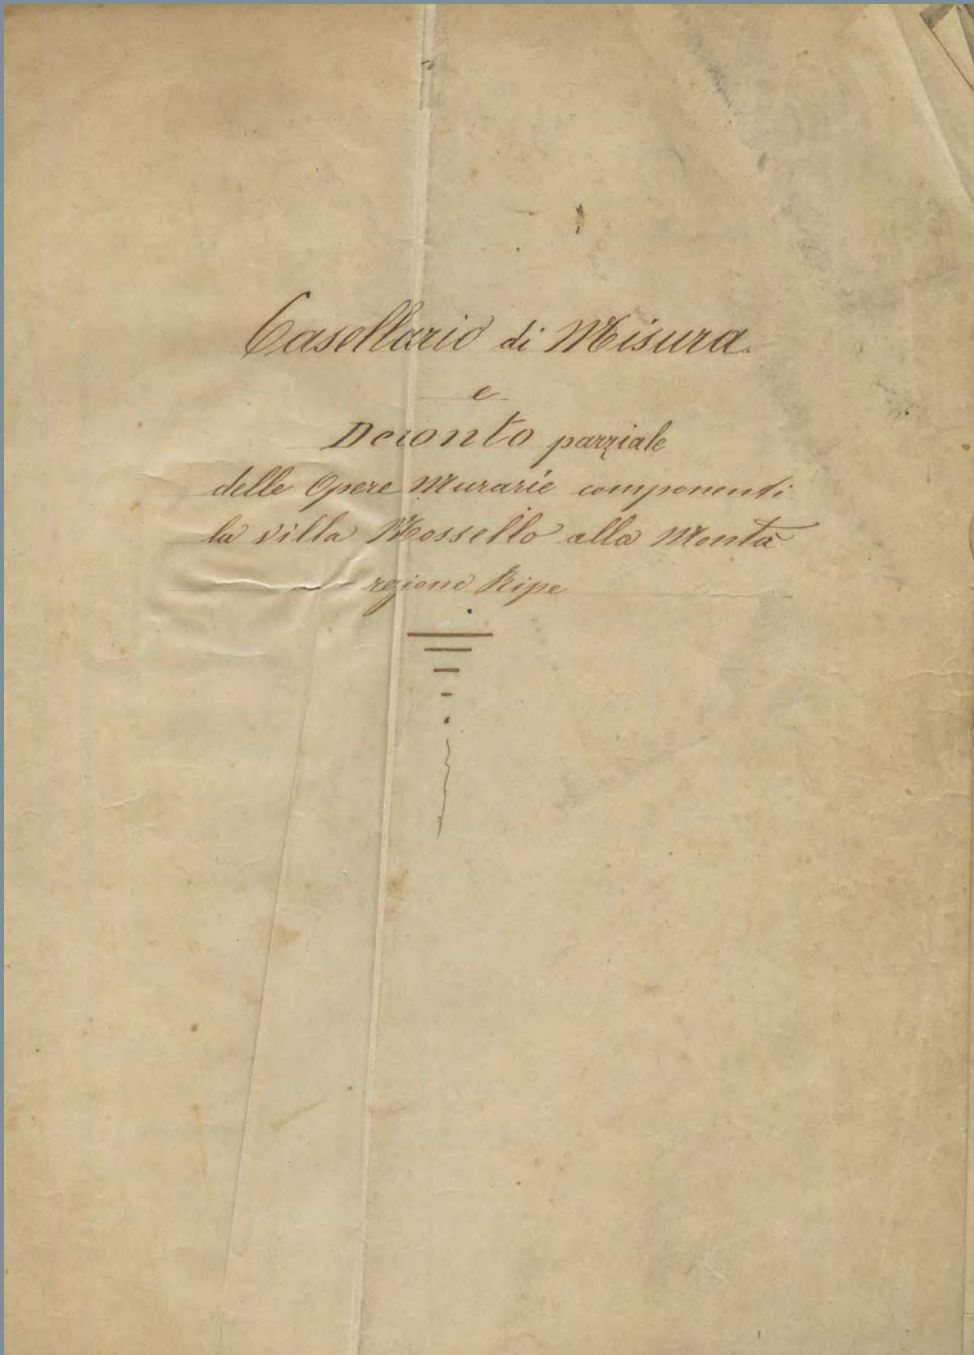 Casellario di Misura.
e
Deconto parziale
delle Opere Murarie componenti
la villa Mossello alla Montà
regione Ripe